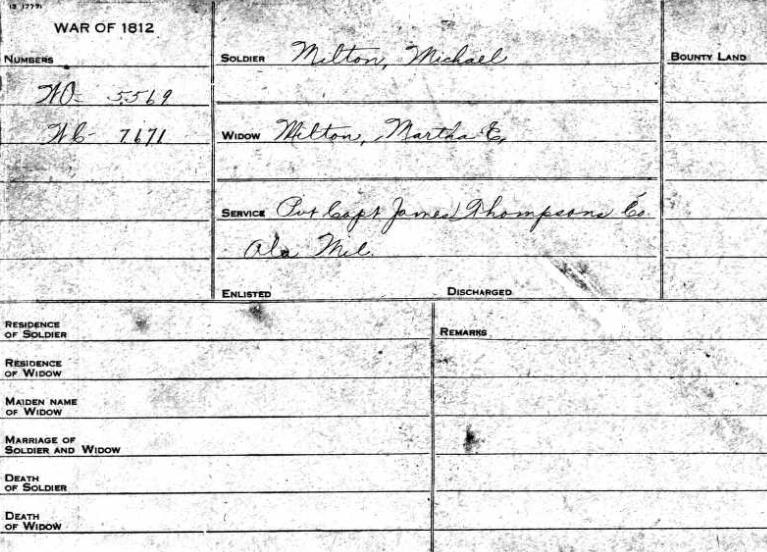 WAR OF 1812
NUMBERS
WO- 5569
WC- 7671
SOLDIER Milton, Michael
WIDOW Milton, Martha E.
SERVICE Pvt Capt James Thompsons Co.
Ala Mil.
ENLISTED DISCHARGED
BOUNTY LAND
RESIDENCE
OF SOLDIER
RESIDENCE
OF WIDOW
MAIDEN NAME
OF WIDOW
MARRIAGE OF
SOLDIER AND WIDOW
DEATH
OF SOLDIER
DEATH
OF WIDOW
REMARKS